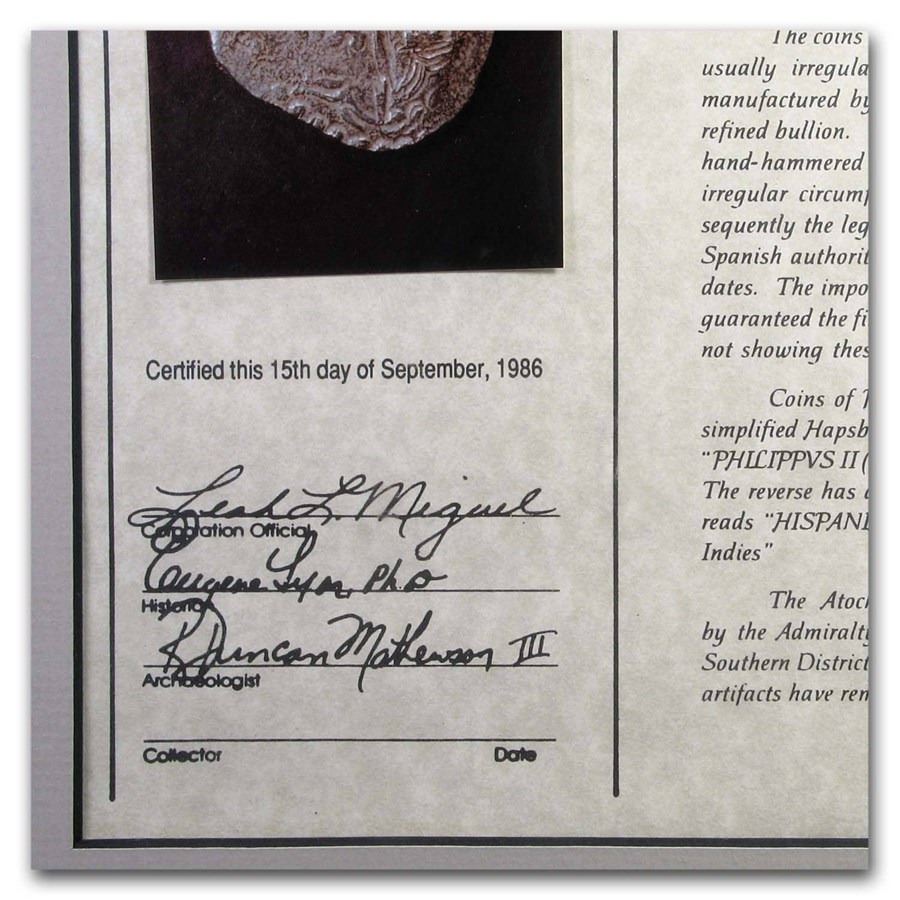 Certified this 15th day of September, 1986
Leah L. Miguel
Corporation Official
Eugene Lyon, Ph.D
Historian
R Duncan Mathewson III
Archaeologist
Collector Date
The coins
usually irregula
manufactured by
refined bullion.
hand-hammered
irregular circum
sequently the leg
Spanish authorit
dates. The impo
guaranteed the fi
not showing thes
Coins of
simplified Hapsb
"PHILIPPVS II (
The reverse has
reads "HISPANI
Indies"
The Atoc
by the Admiralty
Southern District
artifacts have ren